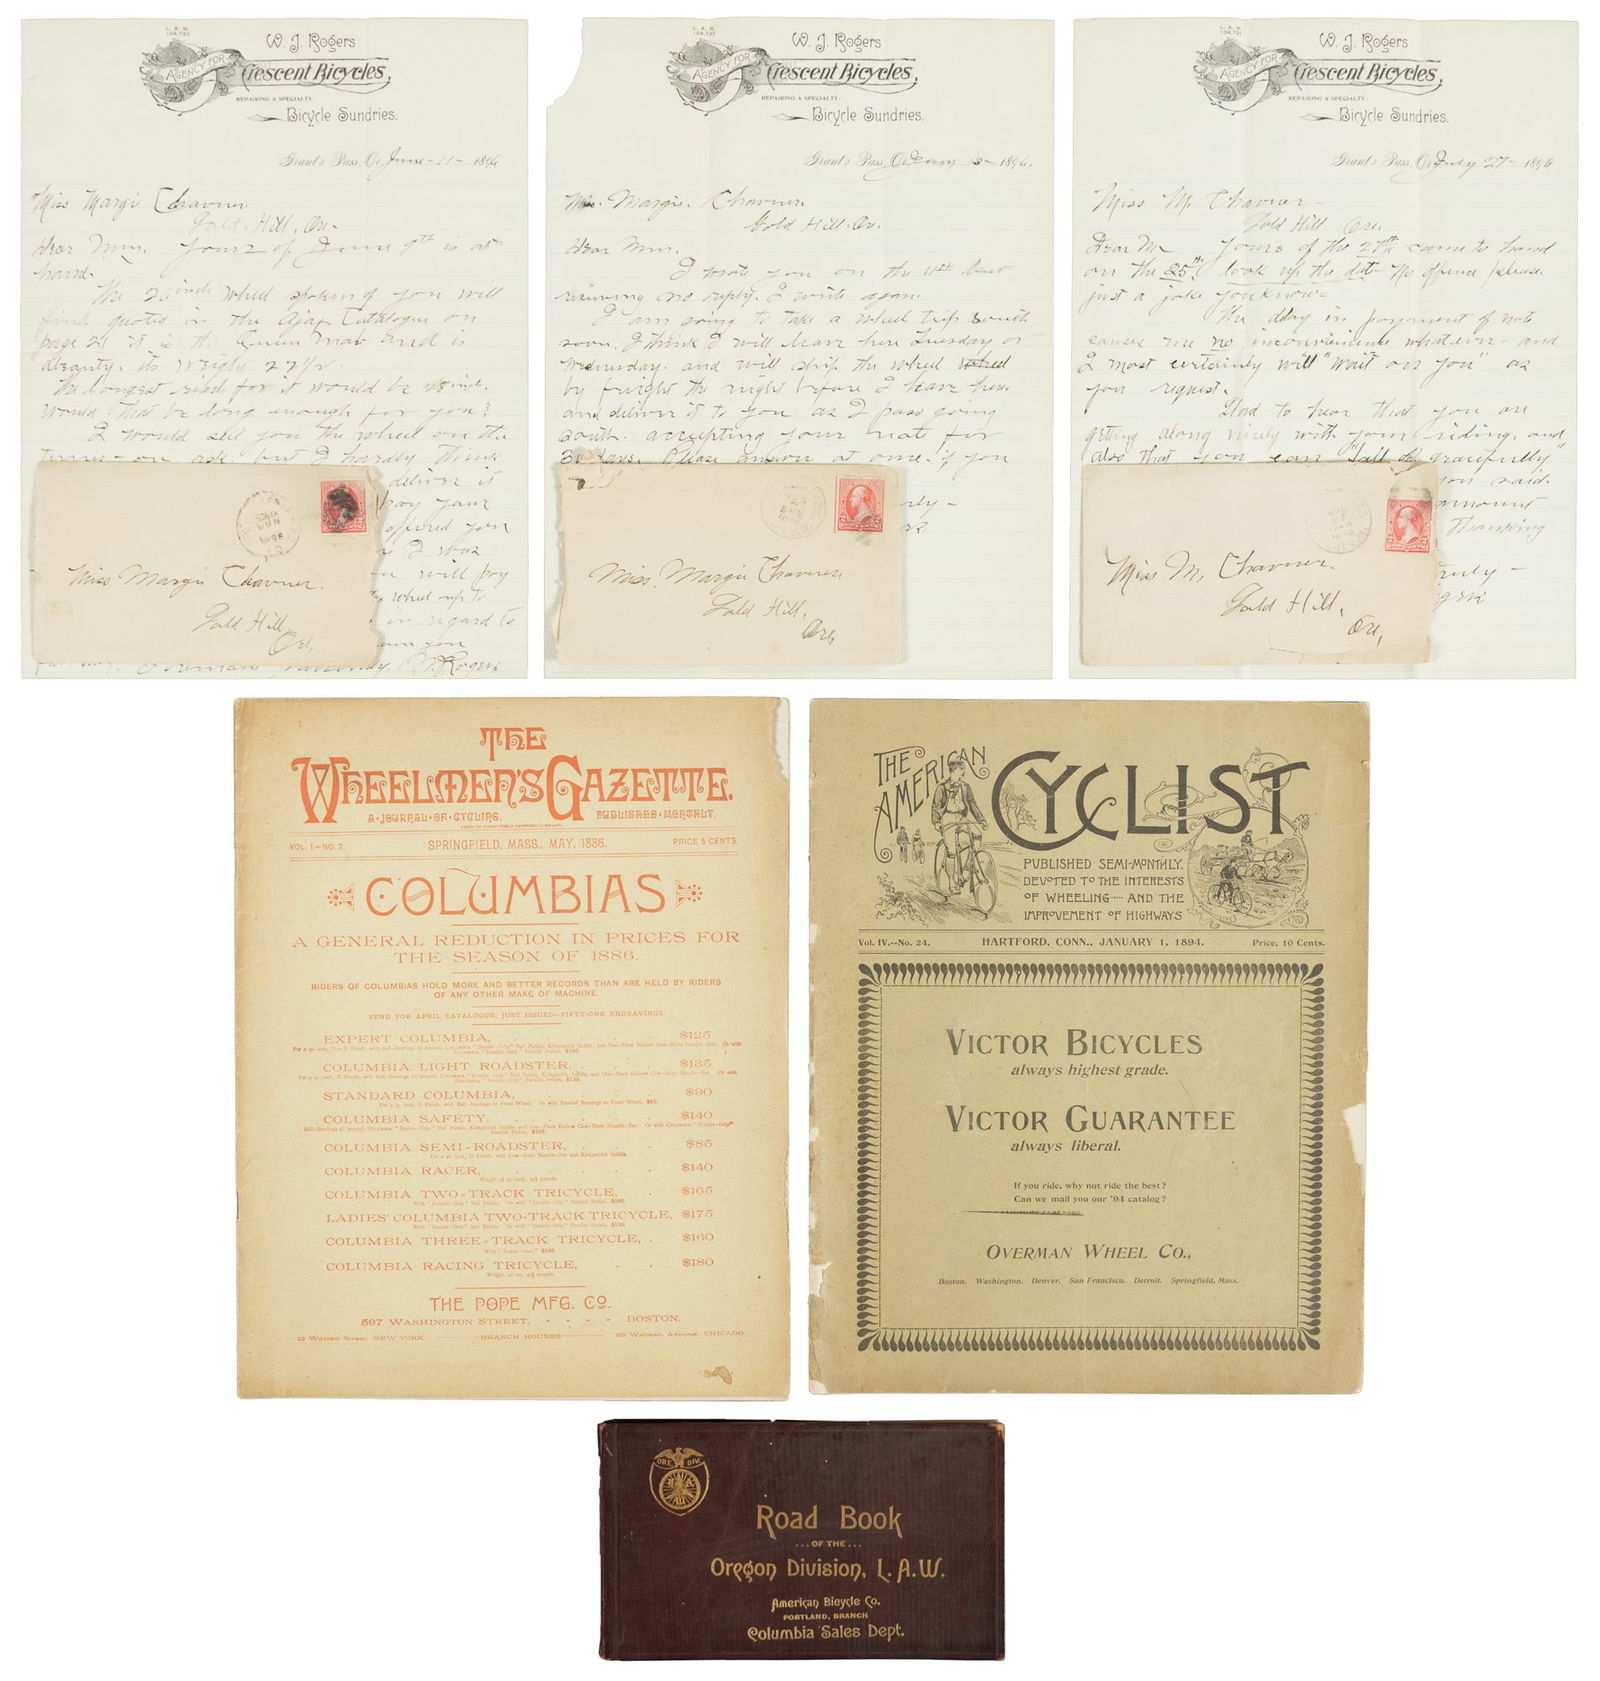 L.A.W.
104,732
W. J. Rogers
AGENCY FOR
Crescent Bicycles,
REPAIRING A SPECIALTY.
Bicycle Sundries.
Grant's Pass, Or. June - 11 - 1896
Miss Margi Chavner.
Gold Hill, Or.
Dear Mm. Yours of June 9th is at
hand.
The 26 inch wheel spoken of you will
find quoted in the Ajax Catalogue on
page 21 it is the Queen Mab and is
a beauty. its weight 22 1/2.
The longest reach for it would be
Would that be long enough for you?
I would sell you the wheel on the
terms - on ask. but I hardly think
deliver it
pay your
offered you
I was
will pay
wheel up to
in regard to
you
Rogers
Miss Margie Chavner.
Gold Hill,
Or.
L.A.W.
104,732
W. J. Rogers
AGENCY FOR
Crescent Bicycles,
REPAIRING A SPECIALTY.
Bicycle Sundries.
Grant's Pass, Or. 1896.
Miss. Margie. Chavner.
Gold Hill. Or.
Dear Mm.
I wrote you on the 11th but
receiving no reply. I write again.
I am going to take a wheel trip south
soon. I think I will leave here Tuesday or
Wednesday. and will ship the wheel
by freight the night before I leave here
and deliver it to you as I pass going
south. accepting your note for
30 days. Please answer at once. if you
Miss. Margie Chavner,
Gold Hill,
Ore,
L.A.W.
104,732
W. J. Rogers
AGENCY FOR
Crescent Bicycles,
REPAIRING A SPECIALTY.
Bicycle Sundries.
Grant's Pass, Or. July 27 - 1896
Miss M. Chavner -
Gold Hill Ore.
Dear Mm Yours of the 27th came to hand
on the 25th. look up the date No offence please.
just a joke you know -
The delay in payment of note
causes me no inconvenience whatever - and
I most certainly will "wait on you" as
you request.
Glad to hear that you are
getting along nicely with your riding, and
also that you can "fall off gracefully"
you said.
amount
Thanking
truly -
Miss M, Chavner.
Gold Hill,
Ore,
THE
WHEELMEN'S GAZETTE.
A·JOURNAL·OF·CYCLING. PUBLISHED·MONTHLY.
VOL. I.—NO. 2. SPRINGFIELD, MASS., MAY, 1886. PRICE 5 CENTS.
COLUMBIAS
A GENERAL REDUCTION IN PRICES FOR
THE SEASON OF 1886.
RIDERS OF COLUMBIAS HOLD MORE AND BETTER RECORDS THAN ARE HELD BY RIDERS
OF ANY OTHER MAKE OF MACHINE.
SEND FOR APRIL CATALOGUE, JUST ISSUED—FIFTY-ONE ENGRAVINGS.
EXPERT COLUMBIA, $125
COLUMBIA LIGHT ROADSTER, $135
STANDARD COLUMBIA, $90
COLUMBIA SAFETY, $140
COLUMBIA SEMI-ROADSTER, $85
COLUMBIA RACER, $140
COLUMBIA TWO-TRACK TRICYCLE, $165
LADIES' COLUMBIA TWO-TRACK TRICYCLE, $175
COLUMBIA THREE-TRACK TRICYCLE, $160
COLUMBIA RACING TRICYCLE, $180
THE POPE MFG. CO.
597 WASHINGTON STREET, - - - - BOSTON.
12 Warren Street, NEW YORK BRANCH HOUSES 115 Wabash Avenue, CHICAGO
THE AMERICAN CYCLIST
PUBLISHED SEMI-MONTHLY.
DEVOTED TO THE INTERESTS
OF WHEELING ···· AND THE
IMPROVEMENT OF HIGHWAYS
Vol. IV.--No. 24. HARTFORD, CONN., JANUARY 1, 1894. Price, 10 Cents.
VICTOR BICYCLES
always highest grade.
VICTOR GUARANTEE
always liberal.
If you ride, why not ride the best?
Can we mail you our '94 catalog?
OVERMAN WHEEL CO.,
Boston. Washington. Denver. San Francisco. Detroit. Springfield, Mass.
ORE. DIV.
Road Book
...OF THE...
Oregon Division, L.A.W.
American Bicycle Co.
PORTLAND, BRANCH
Columbia Sales Dept.